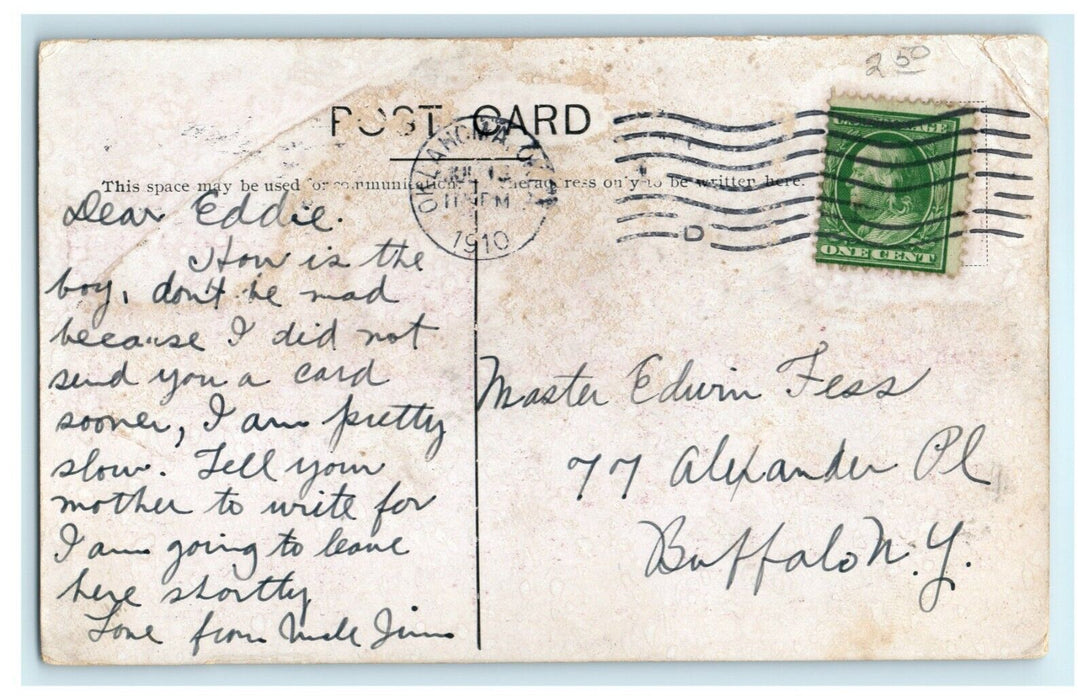 2 50
POST CARD
This space may be used for communication. The address only to be written here.
OKLAHOMA
11 PM
1910
D
U.S. POSTAGE
ONE CENT
Dear Eddie.
How is the
boy, don't be mad
because I did not
send you a card
sooner, I am pretty
slow. Tell your
mother to write for
I am going to leave
here shortly
Love from Uncle Jim
Master Edwin Fess
77 Alexander Pl
Buffalo N.Y.